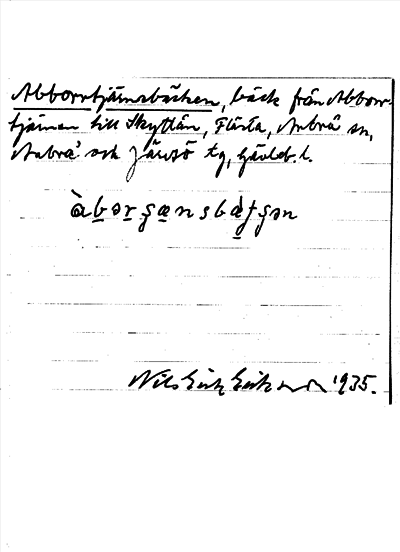 Abborrtjärnsbäcken, bäck från Abborr-
tjärnen till Skyttlån, Flästa, Arbrå sn,
Arbrå och Järvsö tg, Gävleb. l.
àbərʂænsbàtʂən
Nils Erik Eriksson 1935.